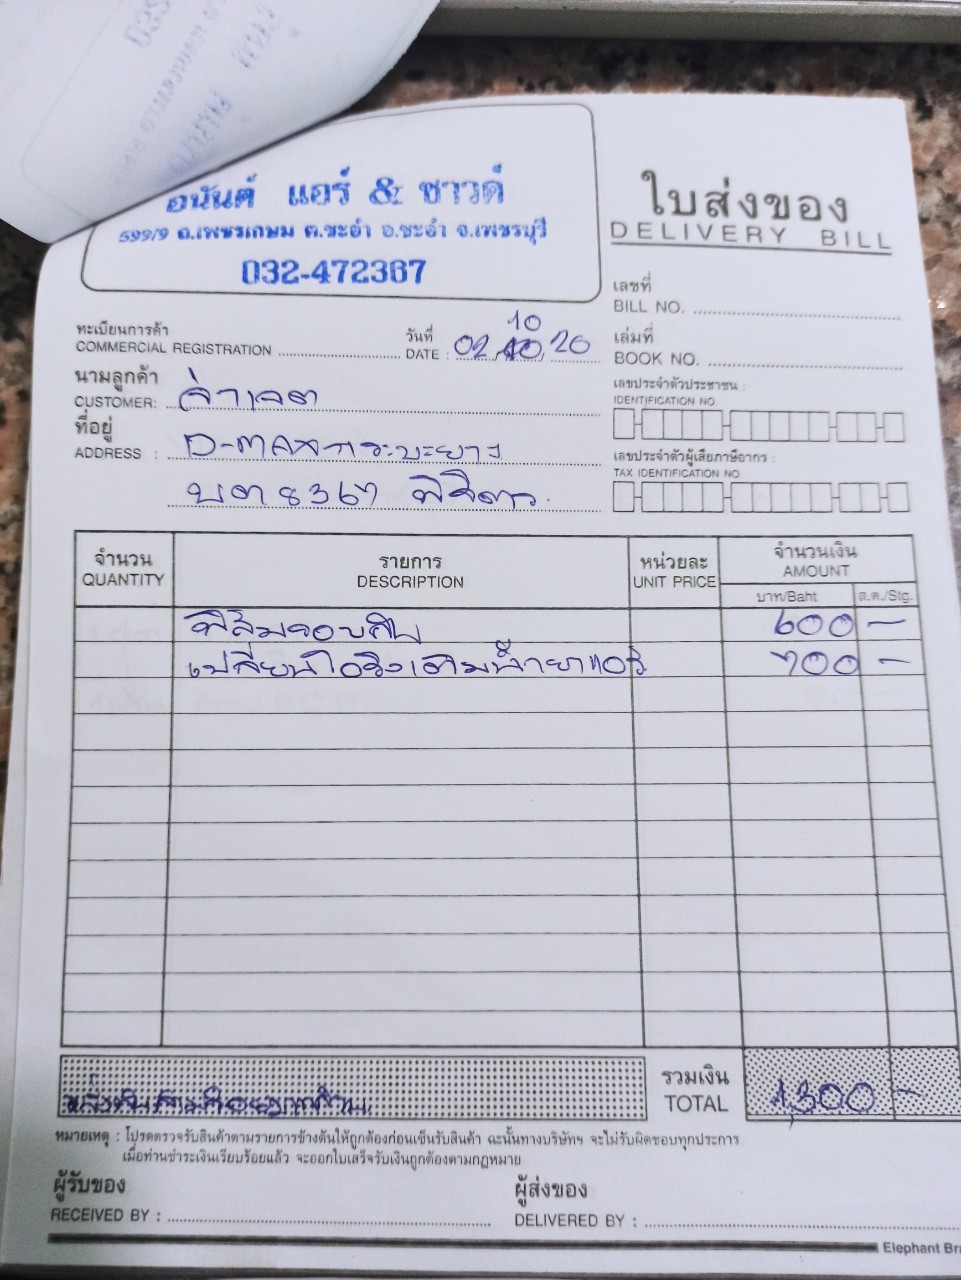 อนันต์ แอร์ & ซาวด์
599/9 ถ.เพชรเกษม ต.ชะอำ อ.ชะอำ จ.เพชรบุรี
032-472367
ใบส่งของ
DELIVERY BILL
เลขที่
BILL NO.
ทะเบียนการค้า
COMMERCIAL REGISTRATION
วันที่
DATE : 02, 10, 20
เล่มที่
BOOK NO.
นามลูกค้า
CUSTOMER: จ่าเจต
เลขประจำตัวประชาชน :
IDENTIFICATION NO.
ที่อยู่
ADDRESS : D-maxกระบะยาว
บต 8367 พิจิตร
เลขประจำตัวผู้เสียภาษีอากร :
TAX IDENTIFICATION NO.
จำนวน รายการ หน่วยละ จำนวนเงิน
QUANTITY DESCRIPTION UNIT PRICE AMOUNT
บาท/Baht ส.ต./Stg.
ฟิล์มรอบคัน 600 -
เปลี่ยนโอริงเติมน้ำยาแอร์ 700 -
รวมเงิน
TOTAL 1,300 -
หนึ่งพันสามร้อยบาทถ้วน
หมายเหตุ : โปรดตรวจรับสินค้าตามรายการข้างต้นให้ถูกต้องก่อนเซ็นรับสินค้า ฉะนั้นทางบริษัทฯ จะไม่รับผิดชอบทุกประการ
เมื่อท่านชำระเงินเรียบร้อยแล้ว จะออกใบเสร็จรับเงินถูกต้องตามกฎหมาย
ผู้รับของ
RECEIVED BY :
ผู้ส่งของ
DELIVERED BY :
Elephant Bra